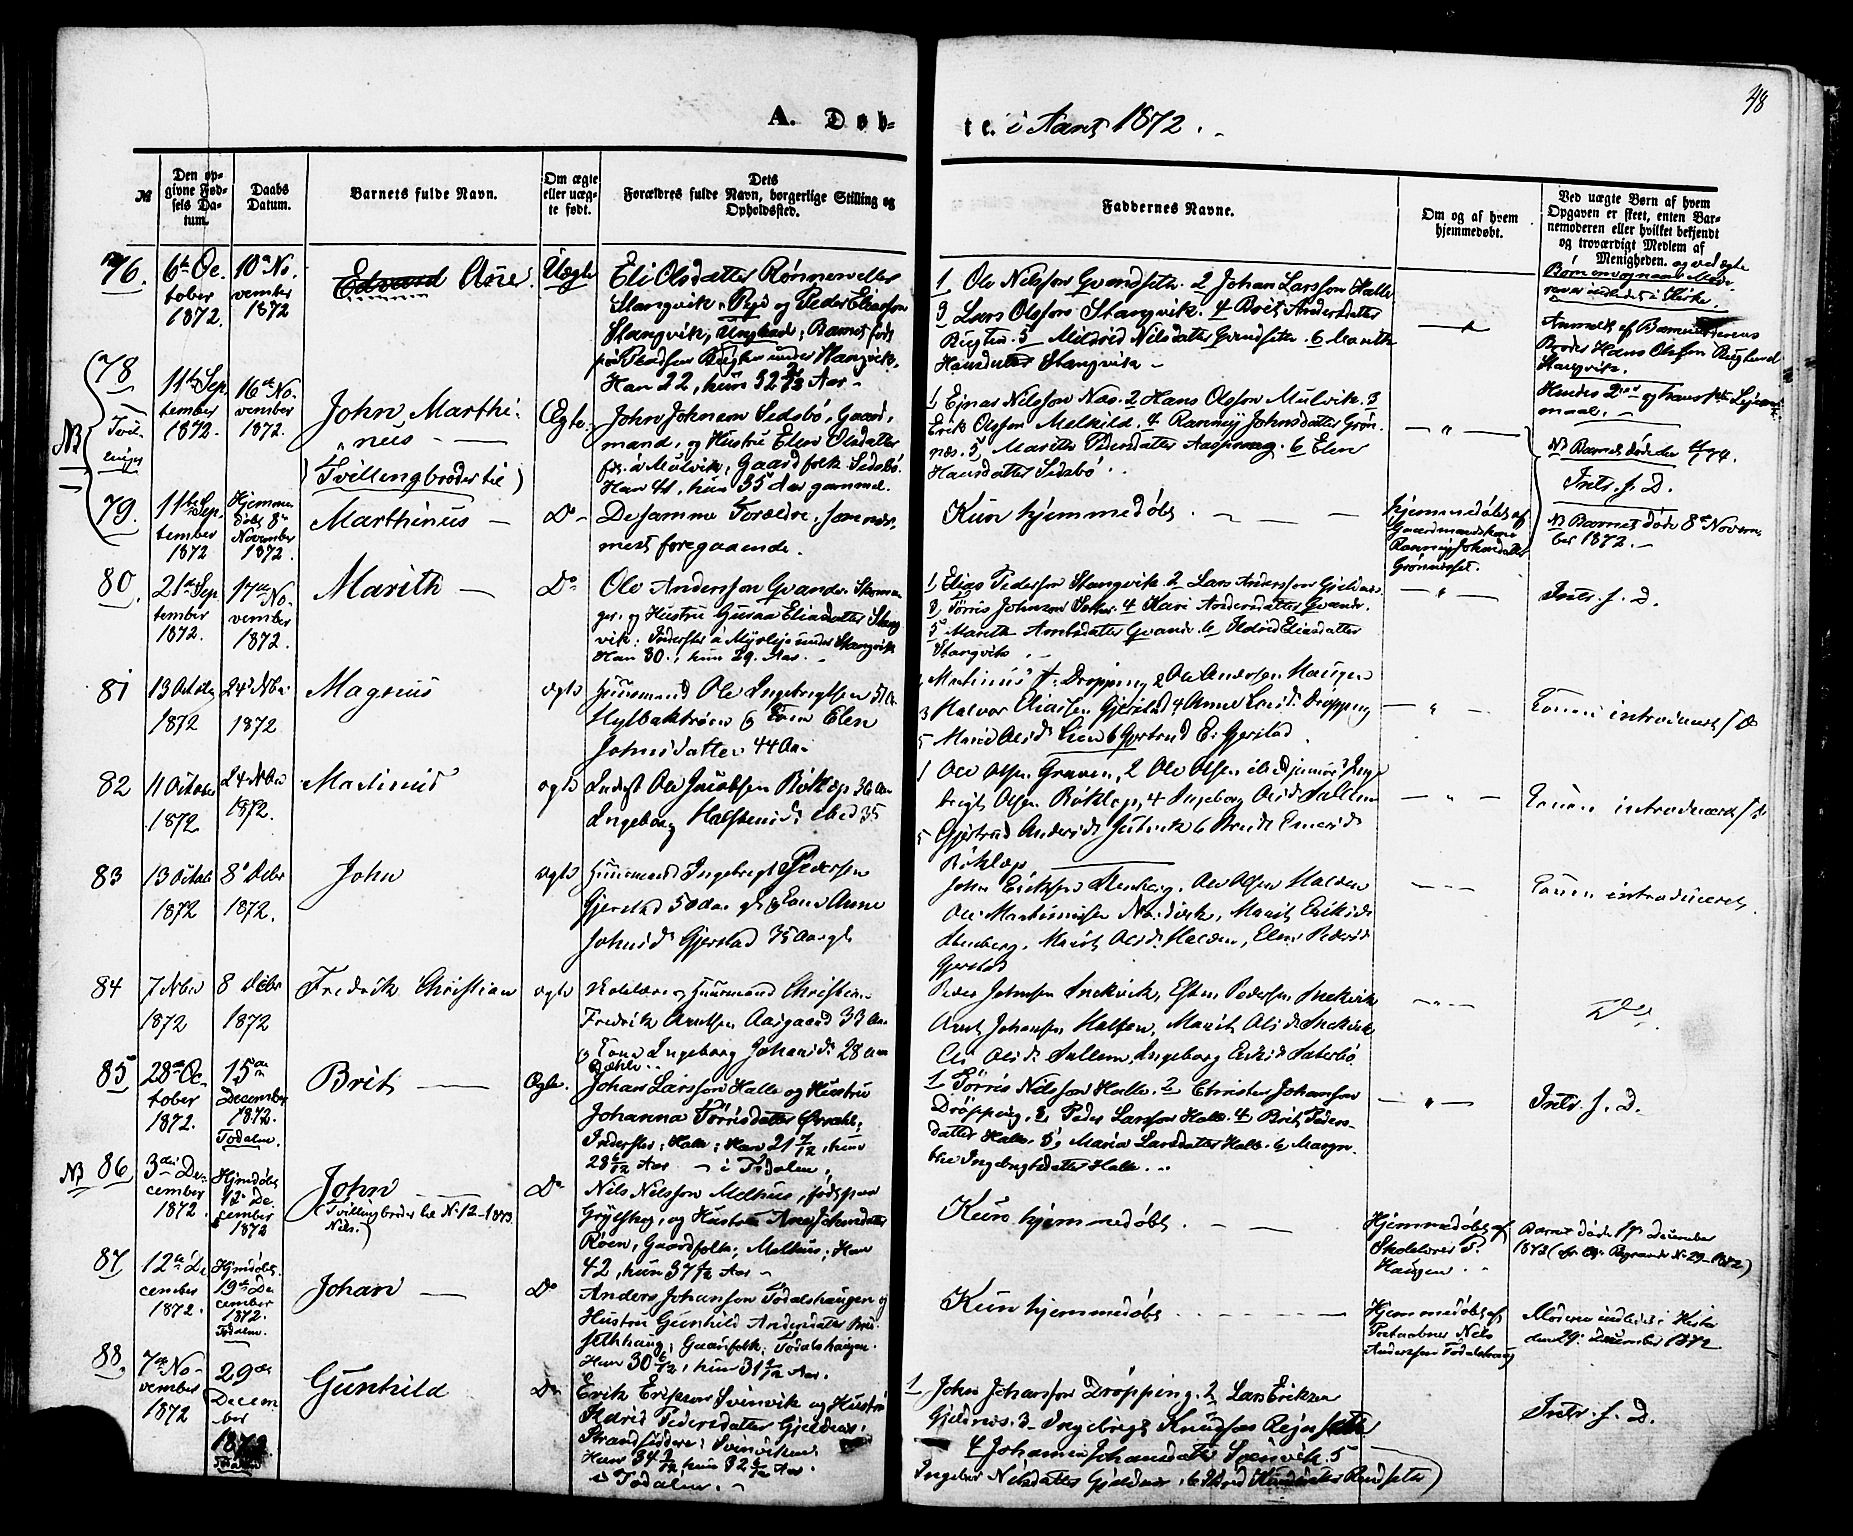 48
A. Døb-
te. i Aaret 1872.
№
Den op-
givne Fød-
sels Da-
tum.
Daabs
Datum.
Barnets fulde Navn.
Om ægte
eller uæg-
te født.
Dets
Forældres fulde Navn, borgerlige Stilling og
Opholdssted.
Faddernes Navne.
Om og af hvem
hjemmedøbt.
Ved uægte Børn af hvem
Opgaven er skeet, enten Bar-
nemoderen eller hvilket bekjendt
og troværdigt Medlem af
Menigheden. og ved ægte
76.
6te Oc-
tober
1872.
10de No-
vember
1872
Edvard Ane.
Uægte
Eli Olsdatter Rønnen eller
Stangvik, Pige og Peder Eliasson
Stangvik, Ungkarl; Barnet født
Han 22, hun 32 Aar
1 Ole Nilsson Gvandseth. 2 Johan Larsson Halle
3 Lars Olsson Stangvik. 4 Brit Andersdatter
5 Mildrid Nilsdatter 6 Marith
Hansdatter Stangvik
Anmeldt af Barnemoderens
Broder Hans Olsson
Stangvik.
NB
78
Tvil-
linger
11te Sep-
tember
1872.
16de No-
vember
1872.
John Marthi-
nus
(Tvillingbroder til)
Ægte.
John Johnson Sedsbø, Gaard-
mand, og Hustru Elen Olsdatter
fød. à Mulvik, Gaardfolk Sedsbø.
Han 41, hun 35 Aar gammel.
1 Ejnar Nilsson Næs. 2 Hans Olsson Mulvik. 3
Erik Olsson Melkild. 4 Rannej Johnsdatter Grøn-
næs. 5 Marith Pedersdatter 6 Elen
Hansdatter Sedsbø
NB Barnet døde den
Intr. f. D.
79.
11te Sep-
tember
1872
Hjemme-
døbt 8de
November
1872.
Marthinus
Do
De samme Forældre, som nær-
mest foregaaende.
Kun hjemmedøbt.
hjemmedøbt af
Gaardmandskone
Rannej Johnsdatter
NB Barnet døde 8de Novem-
ber 1872.
80.
21de Sep-
tember
1872.
17de No-
vember
1872.
Marith
Do
Ole Andersson Gvande. Skoma-
ger. og Hustru Guraa Eliasdatter Stang-
vik. Inderster à Myrleje under Stangvik
Han 30., hun 29. Aar.
1 Elias Pedersson Stangvik. 2 Lars Andersson Gjeldnes.
3 Tørris Johnson 4 Kari Andersdatter Gvande.
5 Marith Arntsdatter Gvande. 6 Ildrid Eliasdatter
Stangvik
Intr. f. D.
81
13 October
1872
24de Nber
1872
Magnus
ægte
Huusmand Ole Ingebrigtsen 51 Aar
Kone Elen
Johnsdatter 44 Aar
Dropping 2 Ole Andersen Haugen
3 Halvor Eliasen Gjerstad 4 Anne Dropping
5 6 Gjertrud E. Gjerstad
Konen introduceret
82
11 October
1872
24 Nber
1872.
Martinus
ægte
Inderst Ole Jacobsen Bøklep 30 Aar
Ingeborg 35
1 Ole Olsen Graven, 2 Ole Olsen
4 Ingeborg Olsd. Sullem
5 Gjertrud Andersd.
Bøklep
Konen introduceret
83
13 Octob.
1872
8de Dcbr
1872.
John
ægte
Huusmand Ingebrigt Pedersen
Gjerstad 50 Aar Kone Anne
Johnsd. Gjerstad 35 Aar
John Eriksen Stenberg. Ole Olsen Halden
Ole Martinusen Nordvik, Marit Eriksd.
Stenberg, Marit Olsd. Halden, Elen Pedersd.
Gjerstad
Konen introduceret.
84
7 Nber
1872
8 Dcbr
1872
Fredrik Christian
ægte
Skolelærer og Huusmand Christian
Fredrik Arntsen Aasgaard 33 Aar
Kone Ingeborg Johansd. 28 Aar
Peder Johnsen Snekvik, Esten Pedersen Snekvik
Arnt Johansen Halsen, Marit Olsd. Snekvik
Olsd. Sullem, Ingeborg Eriksd. Sæterbø
Do
85
28de Oc-
tober
1872.
15de
December
1872.
Todalen.
Brit
Ægte.
Johan Larsson Halle og Hustru
Johanna Tørrisdatter Qvahl;
Inderster; Halle; Han 21 7/12, hun
28 6/12 Aar. i Todalen.
1 Tørris Nilsson Halle. 2 Christer Johansson
Drøpping. 3 Peder Larsson Halle. 4 Brit Peders-
datter Halle. 5 Maria Larsdatter Halle. 6 Margre-
the Ingebrigtsdatter Halle.
Intr. f. D.
NB 86
3die De-
cember
1872.
Hjemdøbt
12te De-
cember
1872
John
(Tvillingbroder til No 12-1873.
Nils.)
Do
Nils Nilsson Melhus, født paa
og Hustru Ane Johnsdatter
Roen, Gaardfolk; Melhus; Han
42, hun 37 Aar
Kun hjemmedøbt.
Hjemmedøbt af
Skolelærer P.
Haugen
Barnet døde 17de December
1872
87
12te De-
cember
1872.
Hjemdøbt
19de De-
cember
1872.
Todalen.
Johan
Do
Anders Johanson Todalshaugen og
Hustru Gunhild Andersdatter Brei-
sethhaug; Gaardfolk; Todalshaugen.
Han 30 6/12, hun 31 Aar.
Kun hjemmedøbt
Hjemmedøbt af
Postaabner Nils
Andersson Todalshaug
Moderen indledet i Kirke
den 29de December 1872
88.
7de No-
vember
1872
29de
Decem-
ber
1872
Todalen
Gunhild
Do
Erik Eriksson Svinvik og Hustru
Ildrid Pedersdatter Gjeldnes;
Strandsiddere; Svinviken.
Han 34, hun 32 Aar.
i Todalen.
1 John Johansson Drøpping. 2 Lars Erikson
Gjeldnes. 3 Ingebrigt Knudson
4 Johanna Johansdatter Svinvik. 5
Ingebor Nilsdatter Gjeldnes, 6
Intr. f. D.